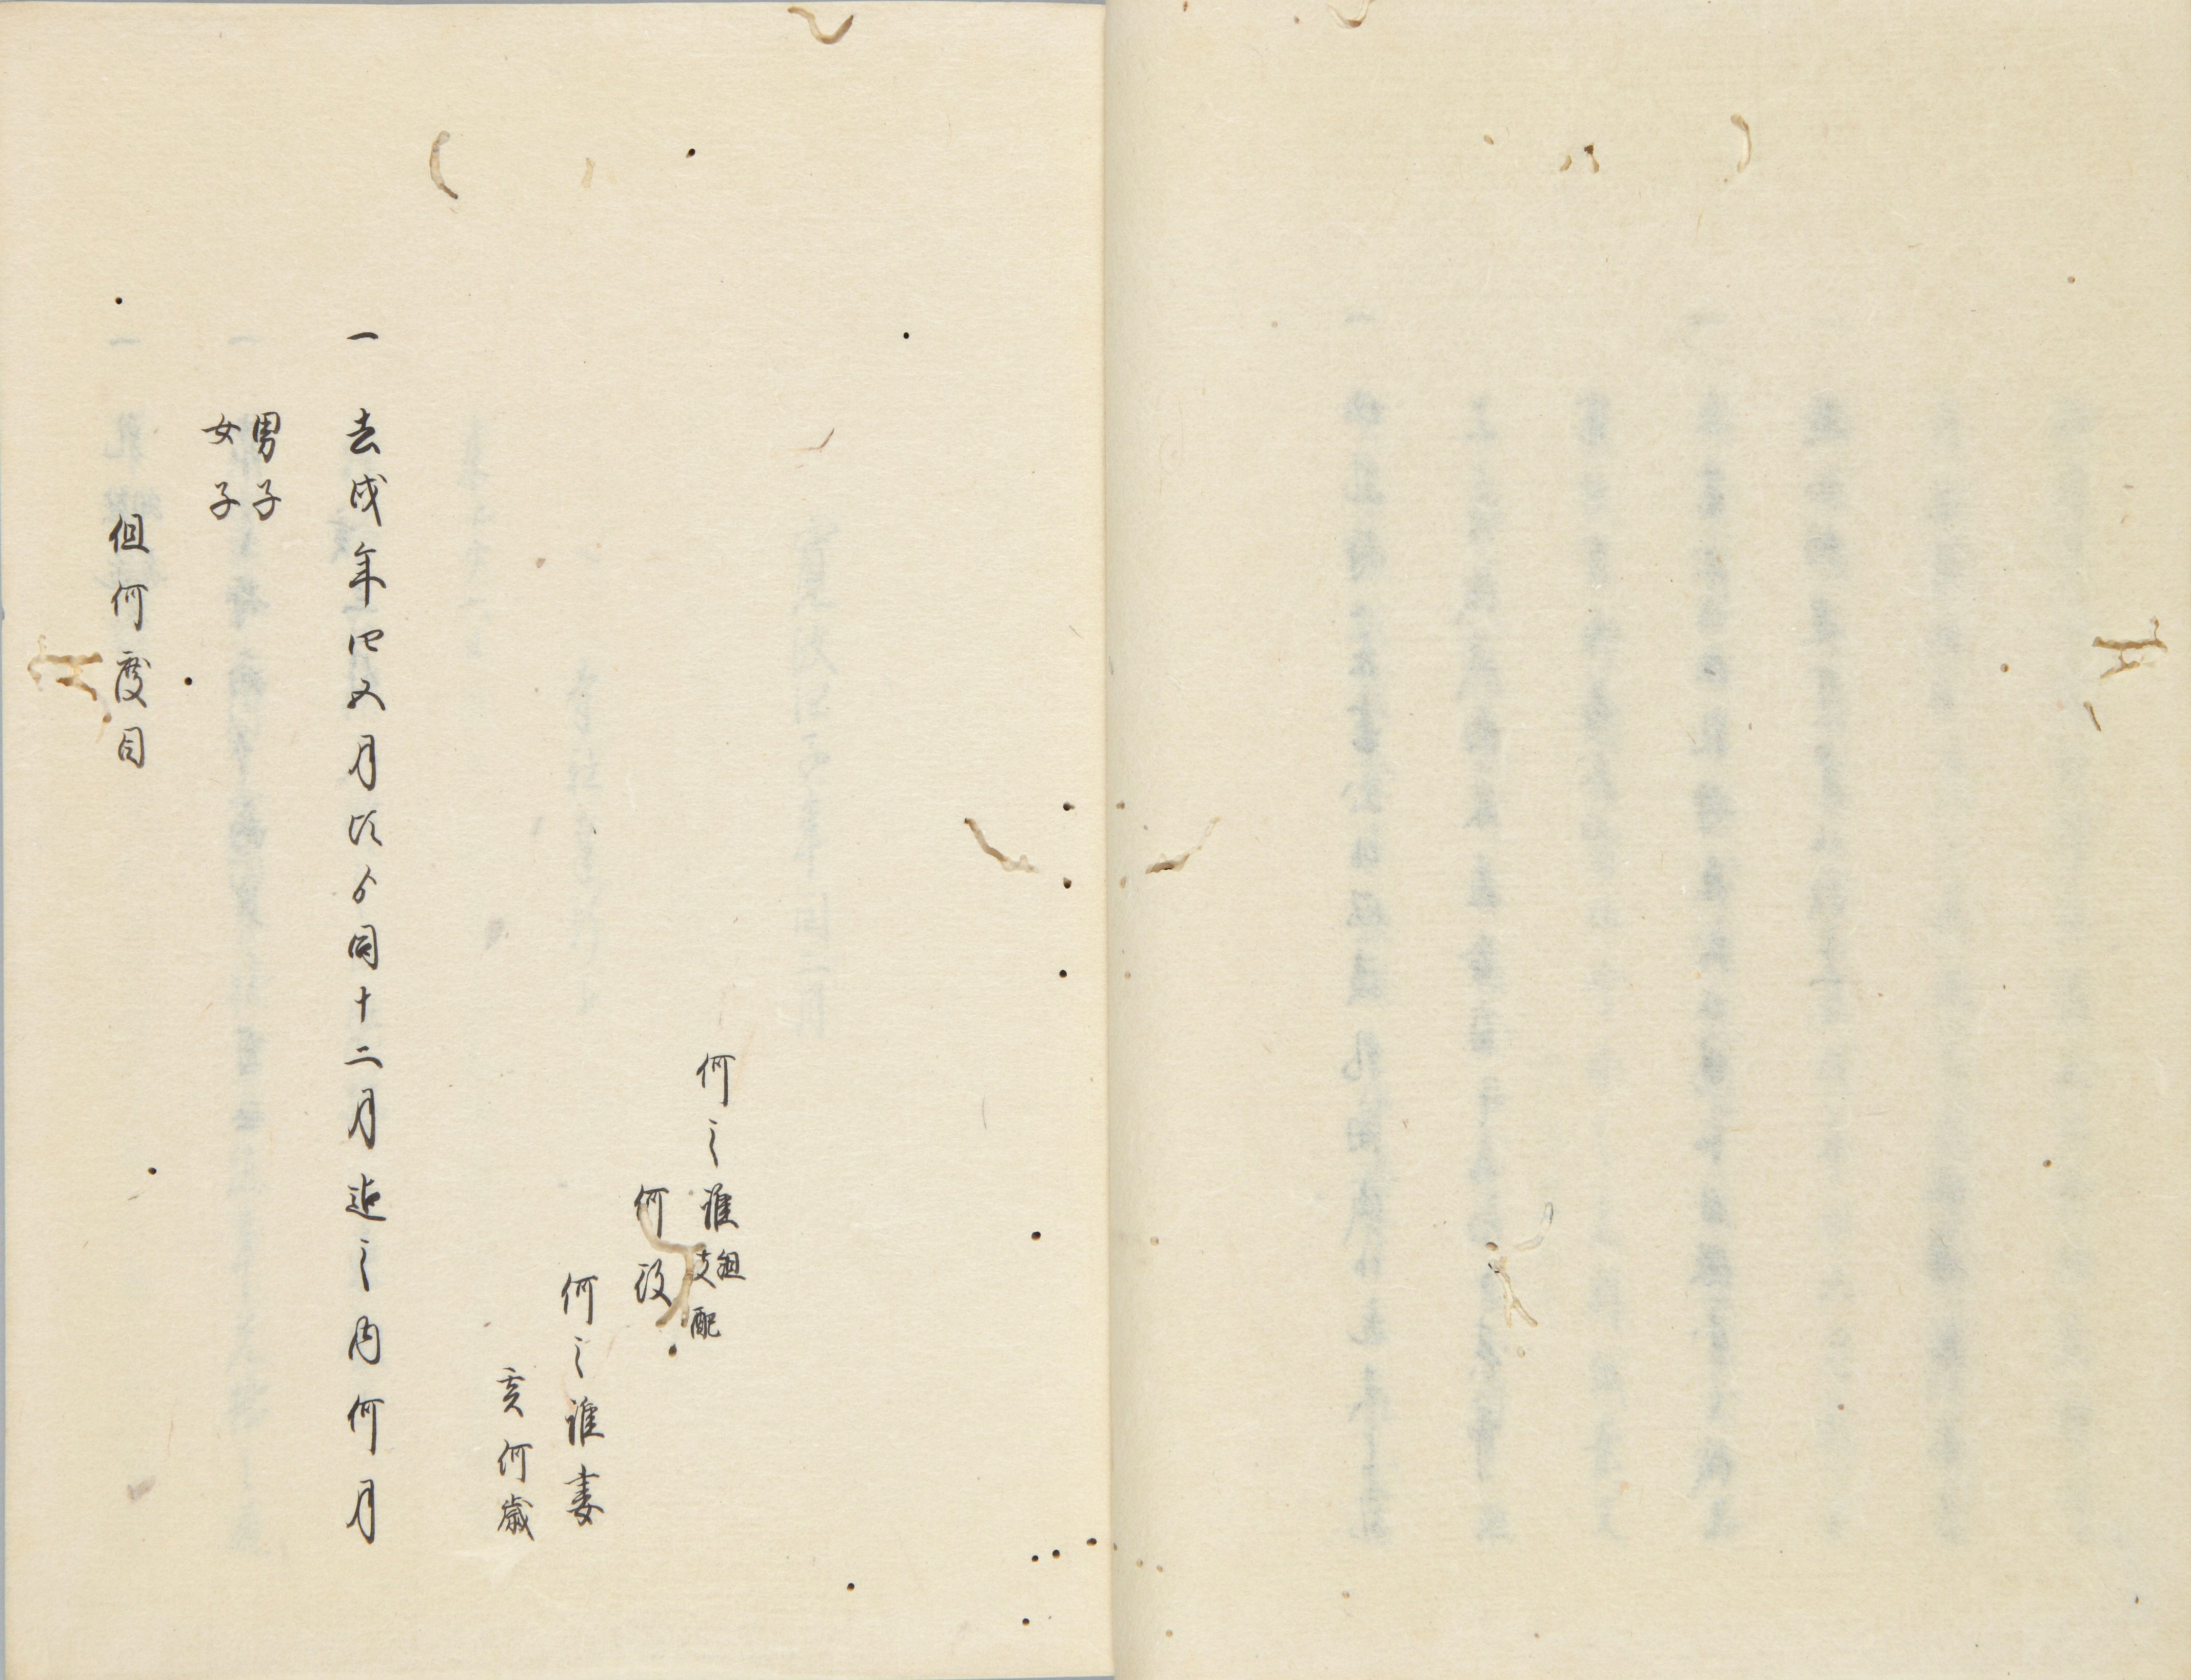 何之誰組
支配
何役
何之誰妻
亥何歳
一去戌年四五月比ゟ同十二月迄之内何月
男子
女子
但何度目